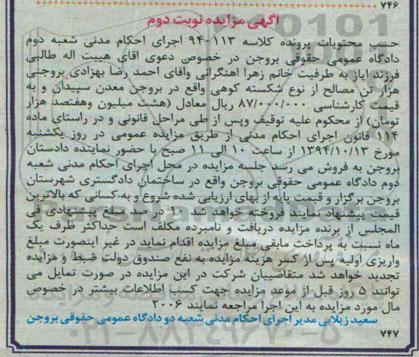 ۷۴۶
آگهی مزایده نوبت دوم
حسب محتویات پرونده کلاسه ۹۴۰۱۱۳ اجرای احکام مدنی شعبه دوم
دادگاه عمومی حقوقی بروجن در خصوص دعوی آقای هیبت اله طالبی
فرزند ایاز به طرفیت خانم زهرا آهنگرانی وآقای احمد رضا بهزادی بروجنی
هزار تن مصالح از نوع شکسته کوهی واقع در بروجن معدن سپیدان و به
قیمت کارشناسی ۸۷/۰۰۰/۰۰۰ ریال معادل (هشت میلیون وهفتصد هزار
تومان) از محکوم علیه توقیف وپس از طی مراحل قانونی و در راستای ماده
۱۱۴ قانون اجرای احکام مدنی از طریق مزایده عمومی در روز یکشنبه
مورخ ۱۳۹۴/۱۰/۱۳ از ساعت ۱۰ الی ۱۱ صبح با حضور نماینده دادستان
بروجن به فروش می رسد جلسه مزایده در محل اجرای احکام مدنی شعبه
دوم دادگاه عمومی حقوقی بروجن واقع در ساختمان دادگستری شهرستان
بروجن برگزار و قیمت پایه از بهای ارزیابی شده شروع و به کسانی که بالاترین
قیمت پیشنهاد نمایند فروخته خواهد شد ۱۰ در صد مبلغ پیشنهادی فی
المجلس از برنده مزایده دریافت و نامبرده مکلف است حداکثر ظرف یک
ماه نسبت به پرداخت مابقی مبلغ مزایده اقدام نماید در غیر اینصورت مبلغ
واریزی اولیه پس از کسر هزینه مزایده به نفع صندوق دولت ضبط و مزایده
تجدید خواهد شد متقاضیان شرکت در این مزایده در صورت تمایل می
توانند ۵ روز قبل از موعد مزایده جهت کسب اطلاعات بیشتر در خصوص
مال مورد مزایده به این اجرا مراجعه نمایند ۲۰۰۶
سعید زیلابی مدیر اجرای احکام مدنی شعبه دو دادگاه عمومی حقوقی بروجن
۷۴۷